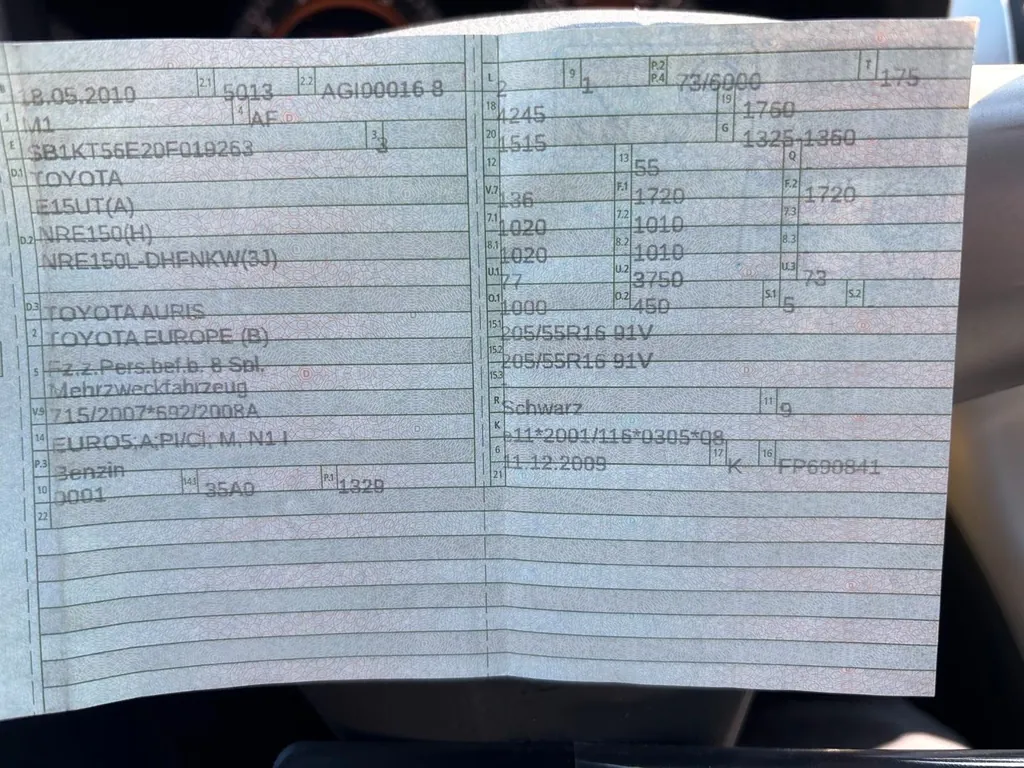 B 18.05.2010 2.1 5013 2.2 AGI00016 8
J M1 4 AF
E SB1KT56E20F019263 3 3
D.1 TOYOTA
E15UT(A)
D.2 NRE150(H)
NRE150L-DHFNKW(3J)
D.3 TOYOTA AURIS
2 TOYOTA EUROPE (B)
5 Fz.z.Pers.bef.b. 8 Spl.
Mehrzweckfahrzeug
V.9 715/2007*692/2008A
14 EURO5;A;PI/CI, M, N1 I
P.3 Benzin
10 0001 14.1 35A0 P.1 1329
22
L 2 9 1 P.2 P.4 73/6000 T 175
18 4245 19 1760
20 1515 G 1325-1360
12 13 55 Q
V.7 136 F.1 1720 F.2 1720
7.1 1020 7.2 1010 7.3
8.1 1020 8.2 1010 8.3
U.1 77 U.2 3750 U.3 73
O.1 1000 O.2 450 S.1 5 S.2
15.1 205/55R16 91V
15.2 205/55R16 91V
15.3
R Schwarz 11 9
K e11*2001/116*0305*08
6 11.12.2009 17 K 16 FP690841
21